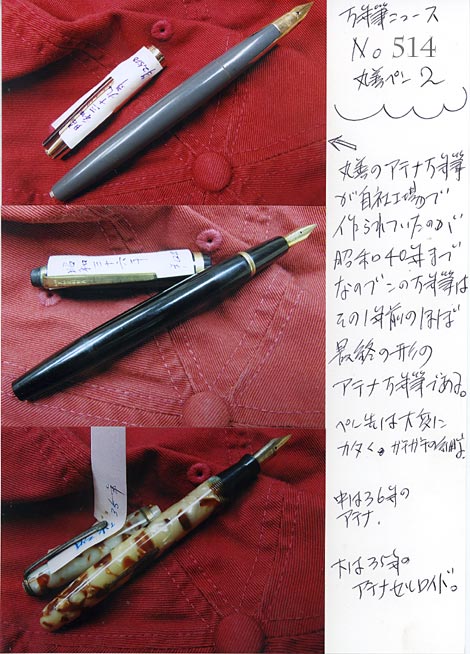 万年筆ニュース
No 514
丸善ペン 2
丸善のアテナ万年筆
が自社工場で
作られていたのが
昭和40年まで
なのでこの万年筆は
その1年前のほぼ
最終の形の
アテナ万年筆である。
ペン先は大変に
カタく。ガチガチの
中は36年の
アテナ.
下は35年の
アテナセルロイド。